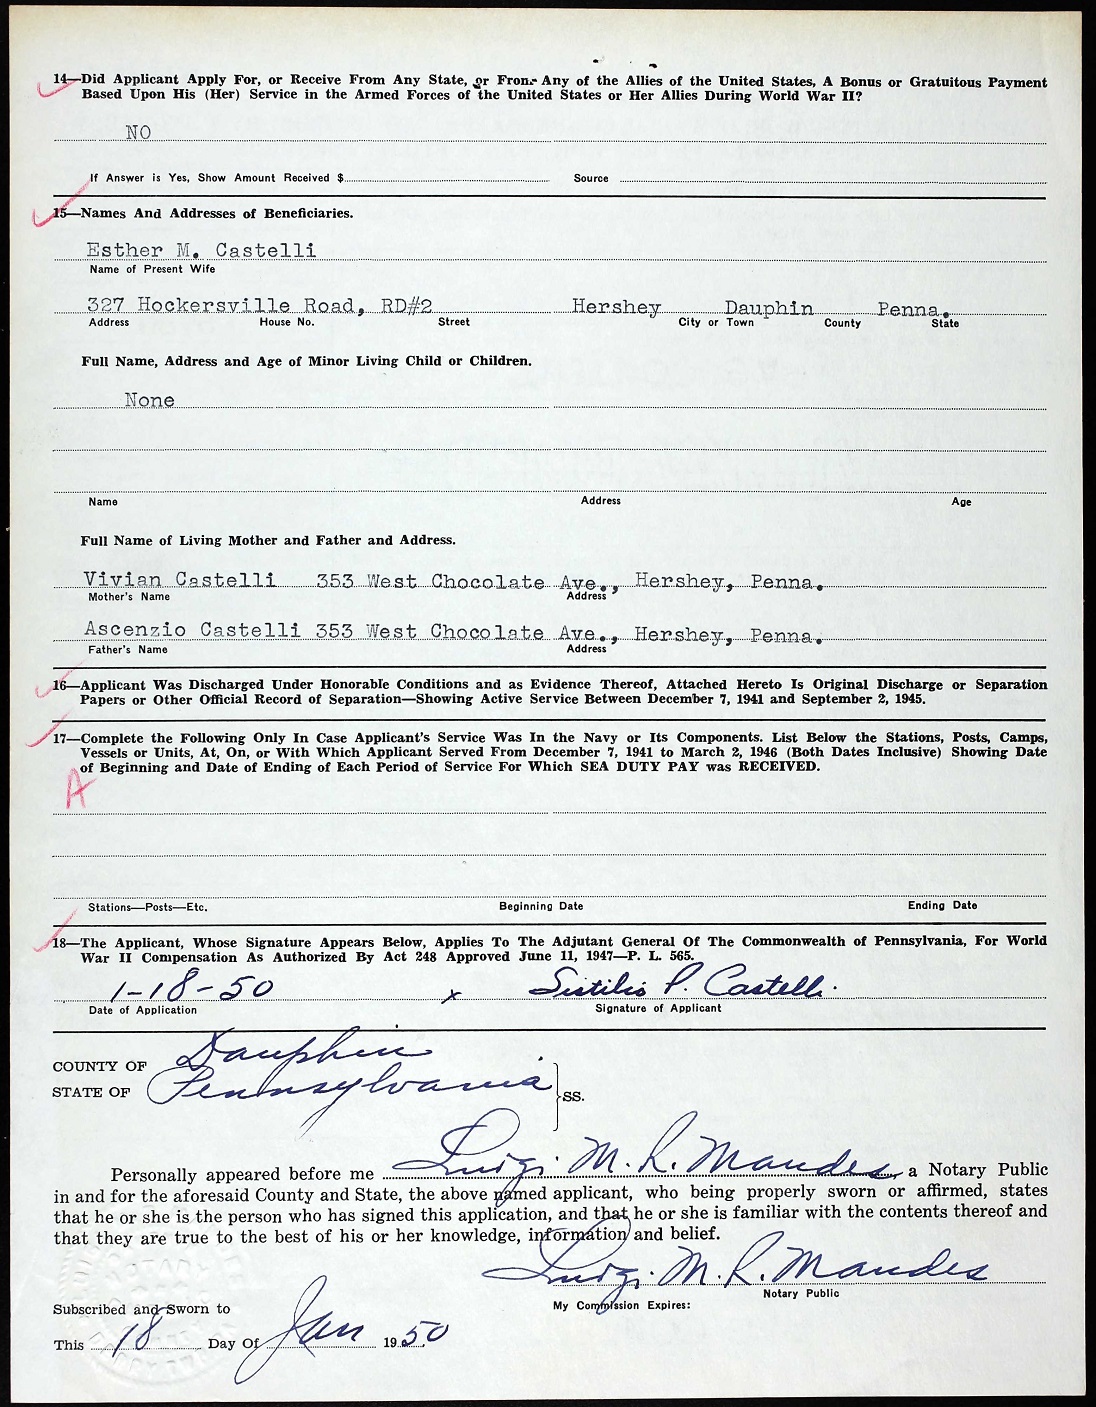 14—Did Applicant Apply For, or Receive From Any State, or From Any of the Allies of the United States, A Bonus or Gratuitous Payment
Based Upon His (Her) Service in the Armed Forces of the United States or Her Allies During World War II?
NO
If Answer is Yes, Show Amount Received $ Source
15—Names And Addresses of Beneficiaries.
Esther M. Castelli
Name of Present Wife
327 Hockersville Road, RD#2 Hershey Dauphin Penna.
Address House No. Street City or Town County State
Full Name, Address and Age of Minor Living Child or Children.
None
Name Address Age
Full Name of Living Mother and Father and Address.
Vivian Castelli 353 West Chocolate Ave., Hershey, Penna.
Mother's Name Address
Ascenzio Castelli 353 West Chocolate Ave., Hershey, Penna.
Father's Name Address
16—Applicant Was Discharged Under Honorable Conditions and as Evidence Thereof, Attached Hereto Is Original Discharge or Separation
Papers or Other Official Record of Separation—Showing Active Service Between December 7, 1941 and September 2, 1945.
17—Complete the Following Only In Case Applicant's Service Was In the Navy or Its Components. List Below the Stations, Posts, Camps,
Vessels or Units, At, On, or With Which Applicant Served From December 7, 1941 to March 2, 1946 (Both Dates Inclusive) Showing Date
of Beginning and Date of Ending of Each Period of Service For Which SEA DUTY PAY was RECEIVED.
A
Stations—Posts—Etc. Beginning Date Ending Date
18—The Applicant, Whose Signature Appears Below, Applies To The Adjutant General Of The Commonwealth of Pennsylvania, For World
War II Compensation As Authorized By Act 248 Approved June 11, 1947—P. L. 565.
1-18-50 x Sistilio P. Castelli
Date of Application Signature of Applicant
COUNTY OF Dauphin
STATE OF Pennsylvania } SS.
Personally appeared before me Luigi M. R. Mandes, a Notary Public
in and for the aforesaid County and State, the above named applicant, who being properly sworn or affirmed, states
that he or she is the person who has signed this application, and that he or she is familiar with the contents thereof and
that they are true to the best of his or her knowledge, information and belief.
Luigi M. R. Mandes
Notary Public
Subscribed and Sworn to My Commission Expires:
This 18 Day Of Jan 1950